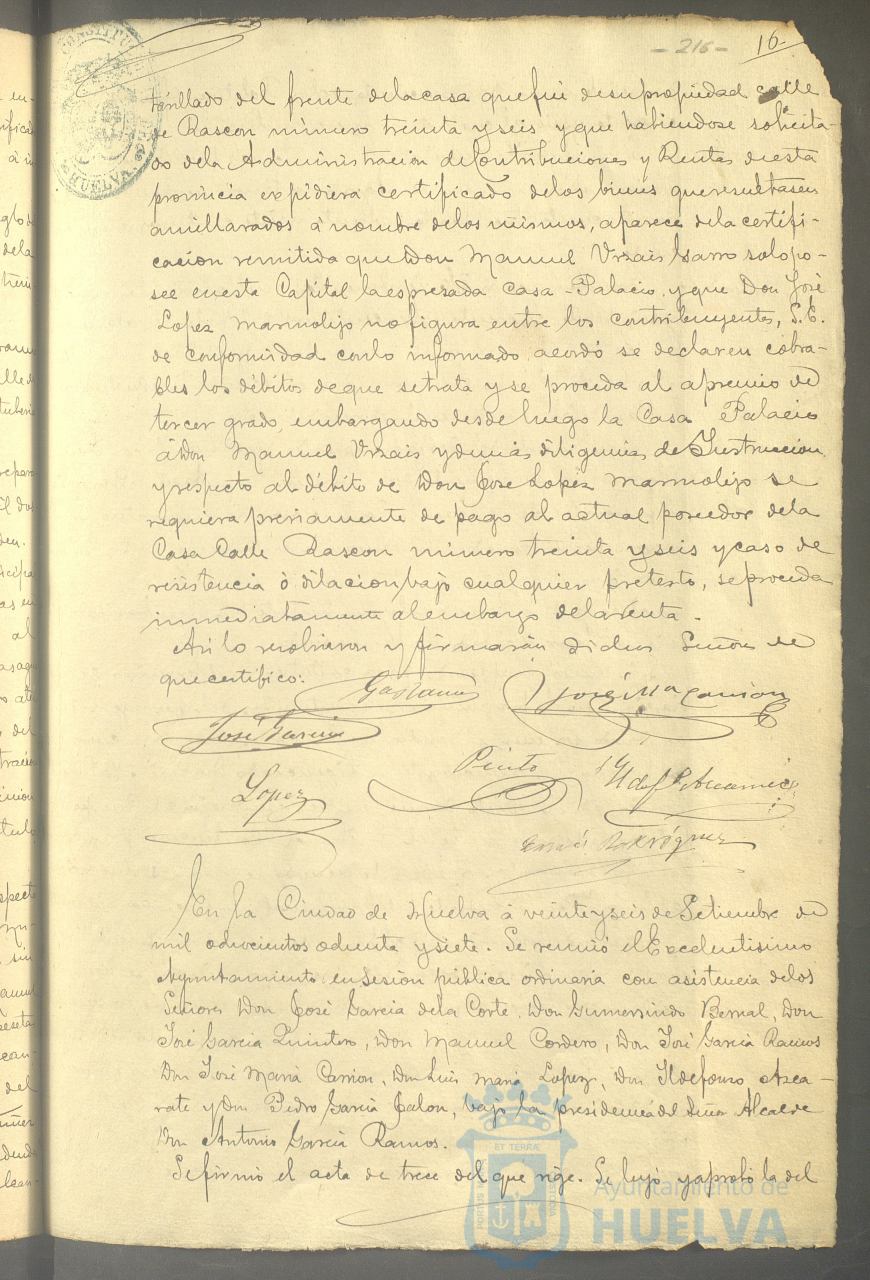 - 216 - 16
del frente dela casa que fué desu propiedad calle
de Rascon número treinta y seis y que habiendose solicita-
do dela Administracion de Contribuciones y Rentas de esta
provincia expidiera certificado delos bienes que resultasen
amillarados á nombre delos mismos, aparece dela certifi-
cacion remitida que Don Manuel Urzais Garro solo po-
see en esta Capital la espresada Casa-Palacio, y que Don José
Lopez Marmolijo no figura entre los contribuyentes, S. E.
de conformidad con lo informado, acordó se declaren cobra-
bles los débitos de que se trata y se proceda al apremio de
tercer grado, embargando desde luego la Casa Palacio
á Don Manuel Urzais y demás diligencias de Instruccion
y respecto al débito de Don Jose Lopez Marmolijo se
requiera previamente de pago al actual poseedor dela
Casa Calle Rascon número treinta y seis y caso de
resistencia ó dilacion bajo cualquier pretesto, se proceda
inmediatamente al embargo dela renta.
Asi lo resolvieron y firmarán dichos Señores de
que certifico:
José Mª Carrion
José Garcia
Pinto
Lopez
Rodríguez
En la Ciudad de Huelva á veinte y seis de Setiembre de
mil ochocientos ochenta y siete. Se reunió el Excelentisimo
Ayuntamiento en sesion pública ordinaria con asistencia delos
Señores Don José Garcia dela Corte, Don Gumersindo Bernal, Don
José Garcia Quintero, Don Manuel Cordero, Don José Garcia Ramos
Don José Maria Carrion, Don Luis Maria Lopez, Don Ildefonso Azca-
rate y Don Pedro Garcia Jalon, bajo la presidencia del Señor Alcalde
Don Antonio Garcia Ramos.
Se firmó el acta de trece del que rige. Se leyó y aprobó la del
HUELVA
ET TERRÆ
PORTUS
CUSTODIA
Ayuntamiento de
HUELVA